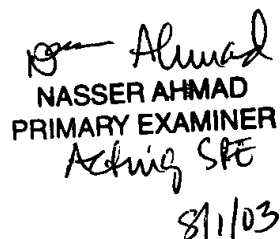 Ahmad
NASSER AHMAD
PRIMARY EXAMINER
Acting SPE
8/1/03